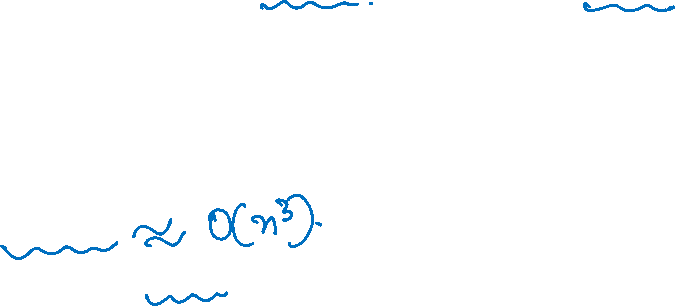 ≈ O(n³).